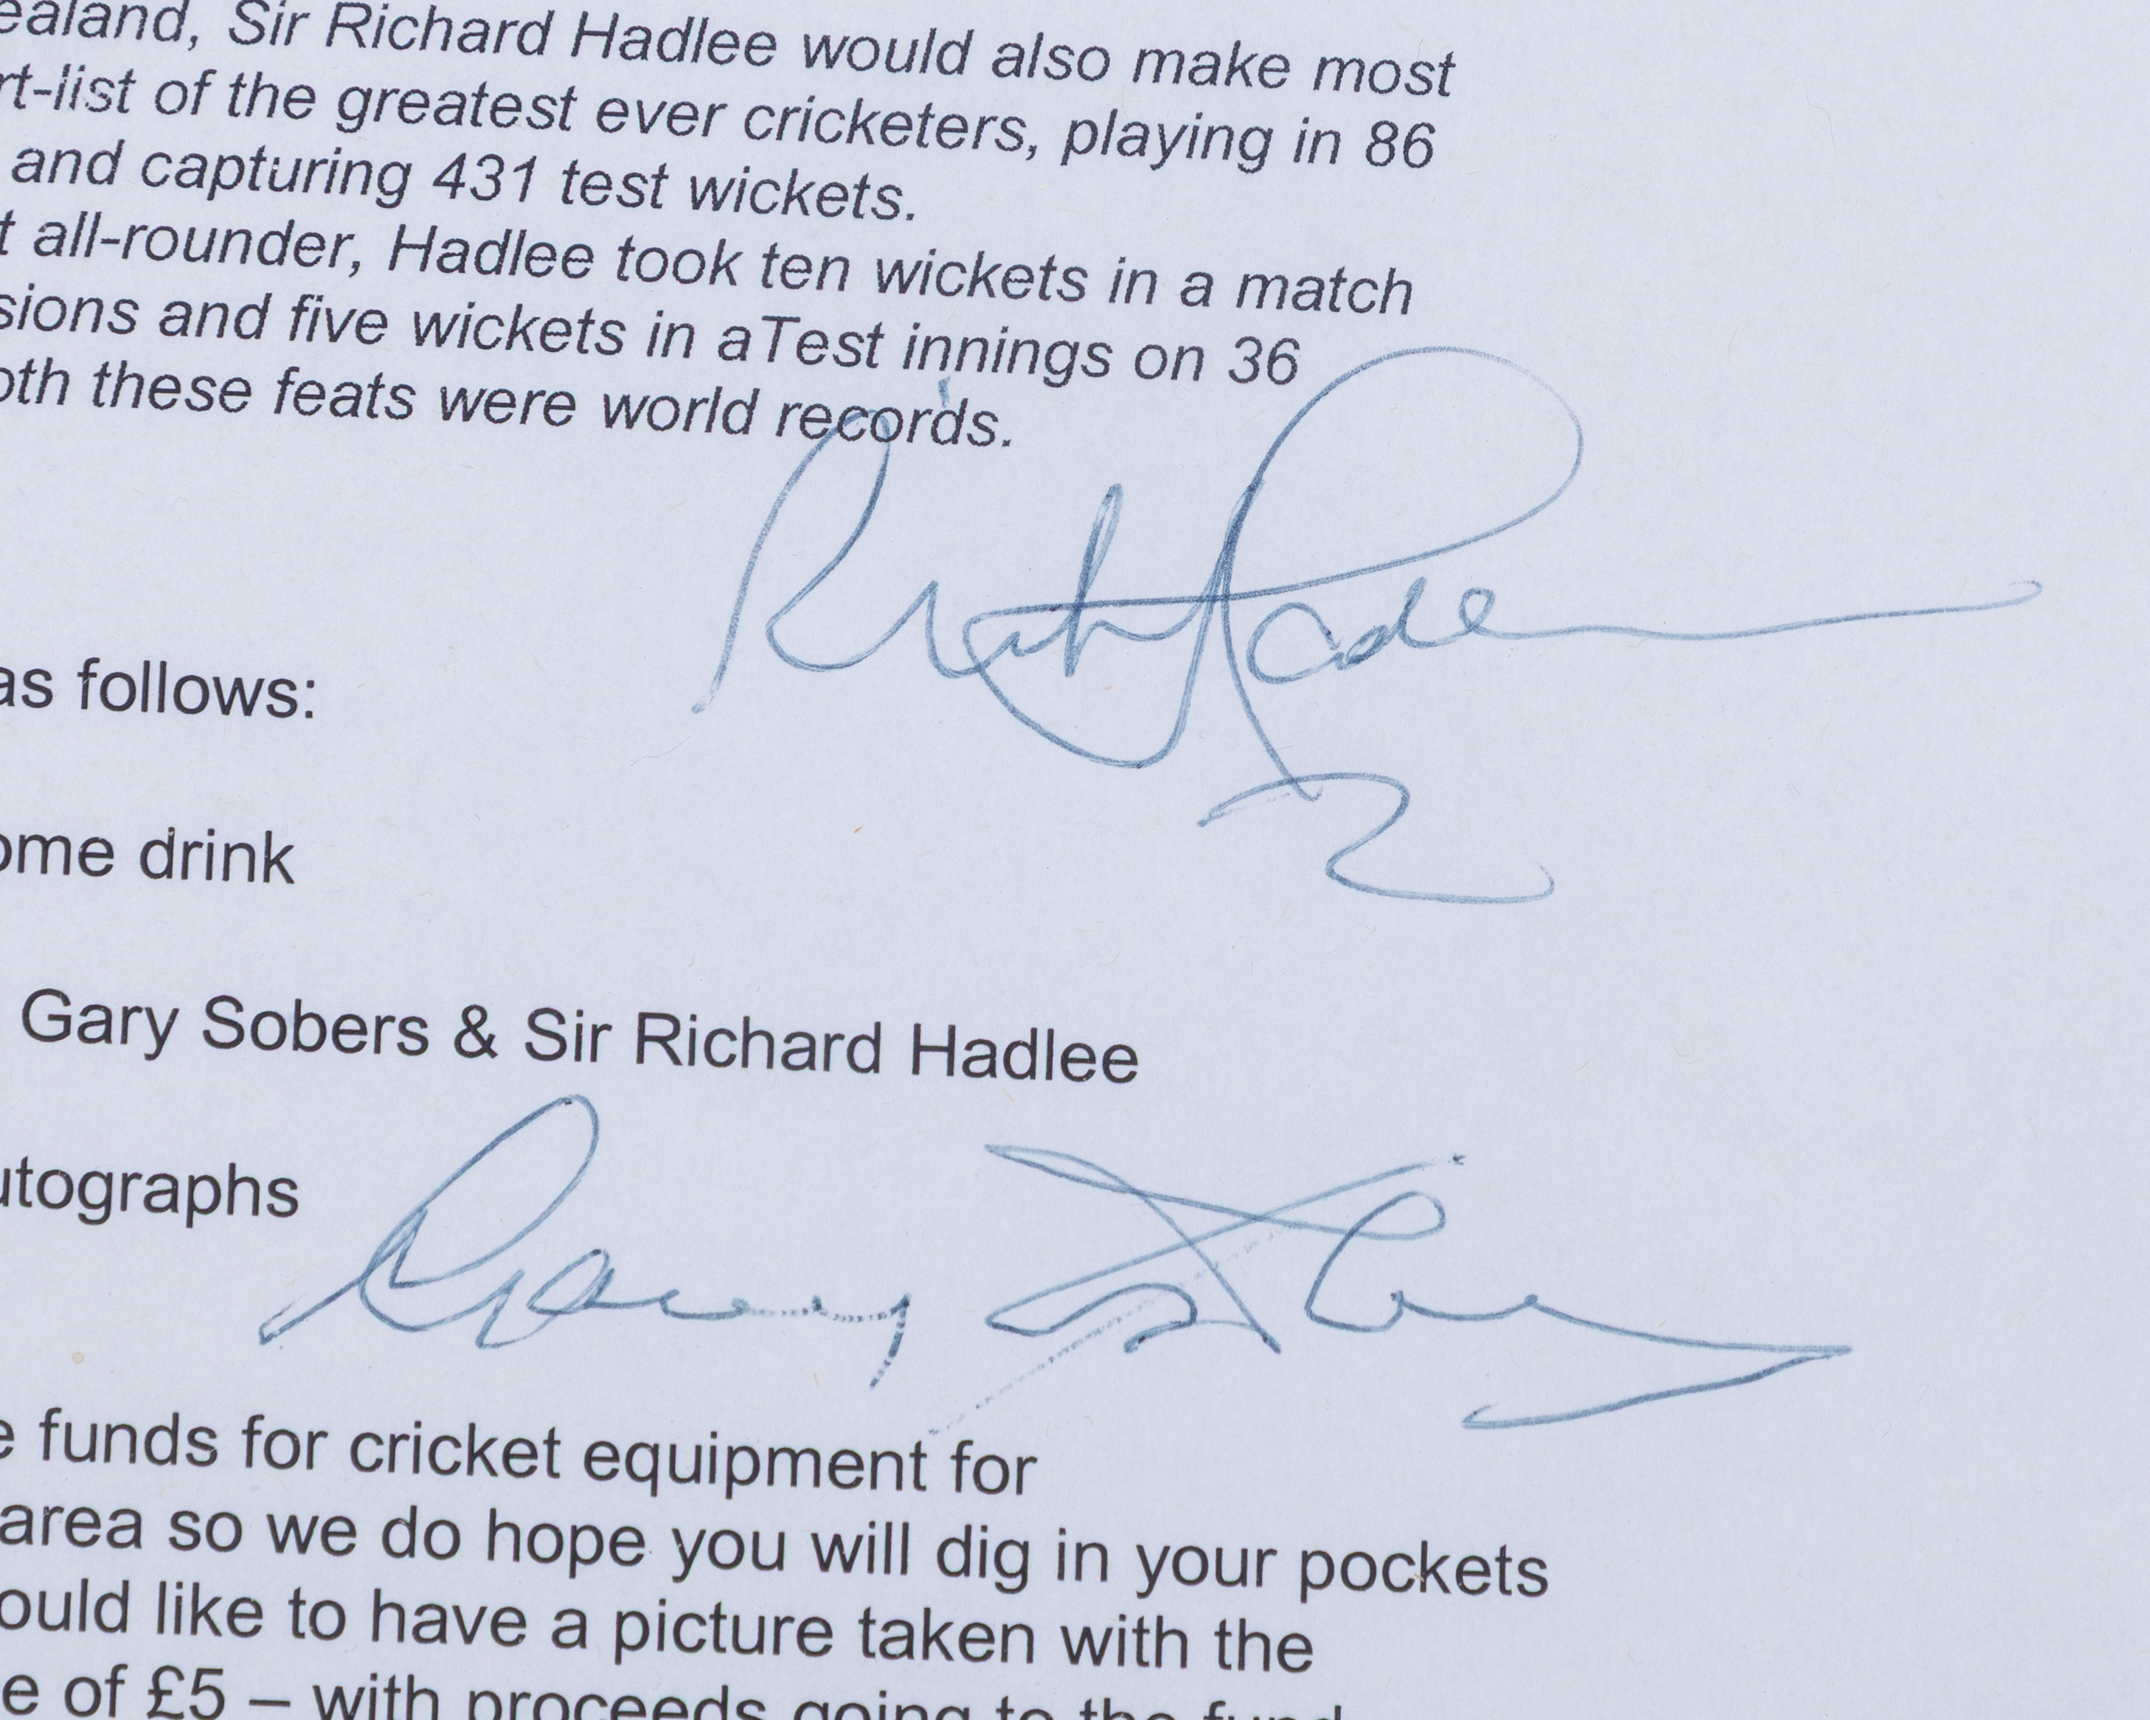 ealand, Sir Richard Hadlee would also make most
rt-list of the greatest ever cricketers, playing in 86
and capturing 431 test wickets.
t all-rounder, Hadlee took ten wickets in a match
sions and five wickets in aTest innings on 36
oth these feats were world records.
Richard Hadlee
as follows:
ome drink
Gary Sobers & Sir Richard Hadlee
utographs
e funds for cricket equipment for
area so we do hope you will dig in your pockets
ould like to have a picture taken with the
e of £5 – with proceeds going to the fund